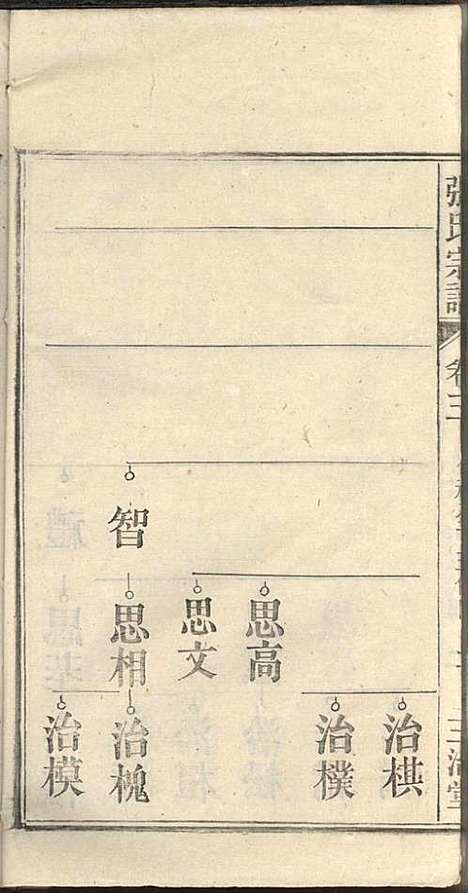 張氏宗譜
卷三
三治堂
智
思高
思文
思相
治棋
治樸
治槐
治模